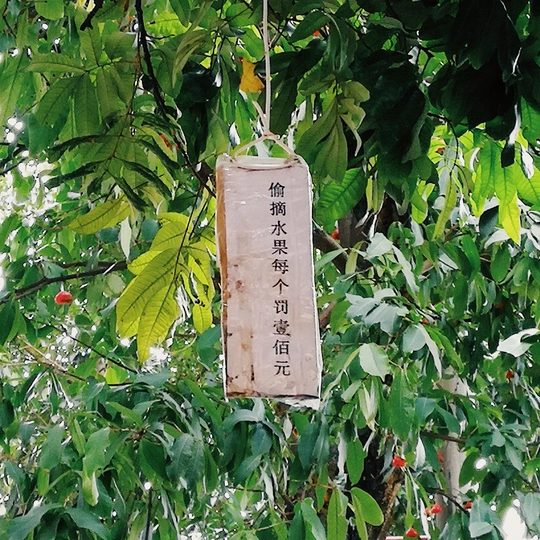 偷摘水果每个罚壹佰元